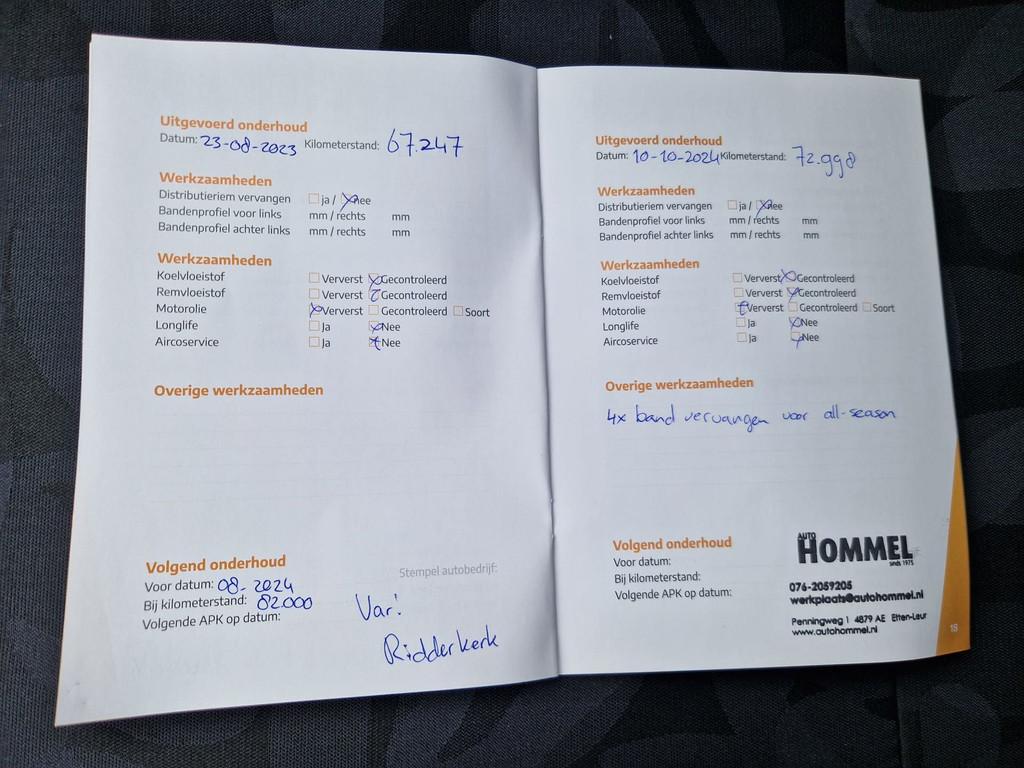 Uitgevoerd onderhoud
Datum: 23-08-2023 Kilometerstand: 67.247
Werkzaamheden
Distributieriem vervangen ja / nee
Bandenprofiel voor links mm / rechts mm
Bandenprofiel achter links mm / rechts mm
Werkzaamheden
Koelvloeistof Ververst Gecontroleerd
Remvloeistof Ververst Gecontroleerd
Motorolie Ververst Gecontroleerd Soort
Longlife Ja Nee
Aircoservice Ja Nee
Overige werkzaamheden
Volgend onderhoud
Voor datum: 08-2024
Bij kilometerstand: 82.000
Volgende APK op datum:
Stempel autobedrijf:
Var!
Ridderkerk
Uitgevoerd onderhoud
Datum: 10-10-2024 Kilometerstand: 72.998
Werkzaamheden
Distributieriem vervangen ja / nee
Bandenprofiel voor links mm / rechts mm
Bandenprofiel achter links mm / rechts mm
Werkzaamheden
Koelvloeistof Ververst Gecontroleerd
Remvloeistof Ververst Gecontroleerd
Motorolie Ververst Gecontroleerd Soort
Longlife Ja Nee
Aircoservice Ja Nee
Overige werkzaamheden
4x band vervangen voor all-season
Volgend onderhoud
Voor datum:
Bij kilometerstand:
Volgende APK op datum:
AUTO
HOMMEL
sinds 1975
076-2059205
werkplaats@autohommel.nl
Penningweg 1 4879 AE Etten-Leur
www.autohommel.nl